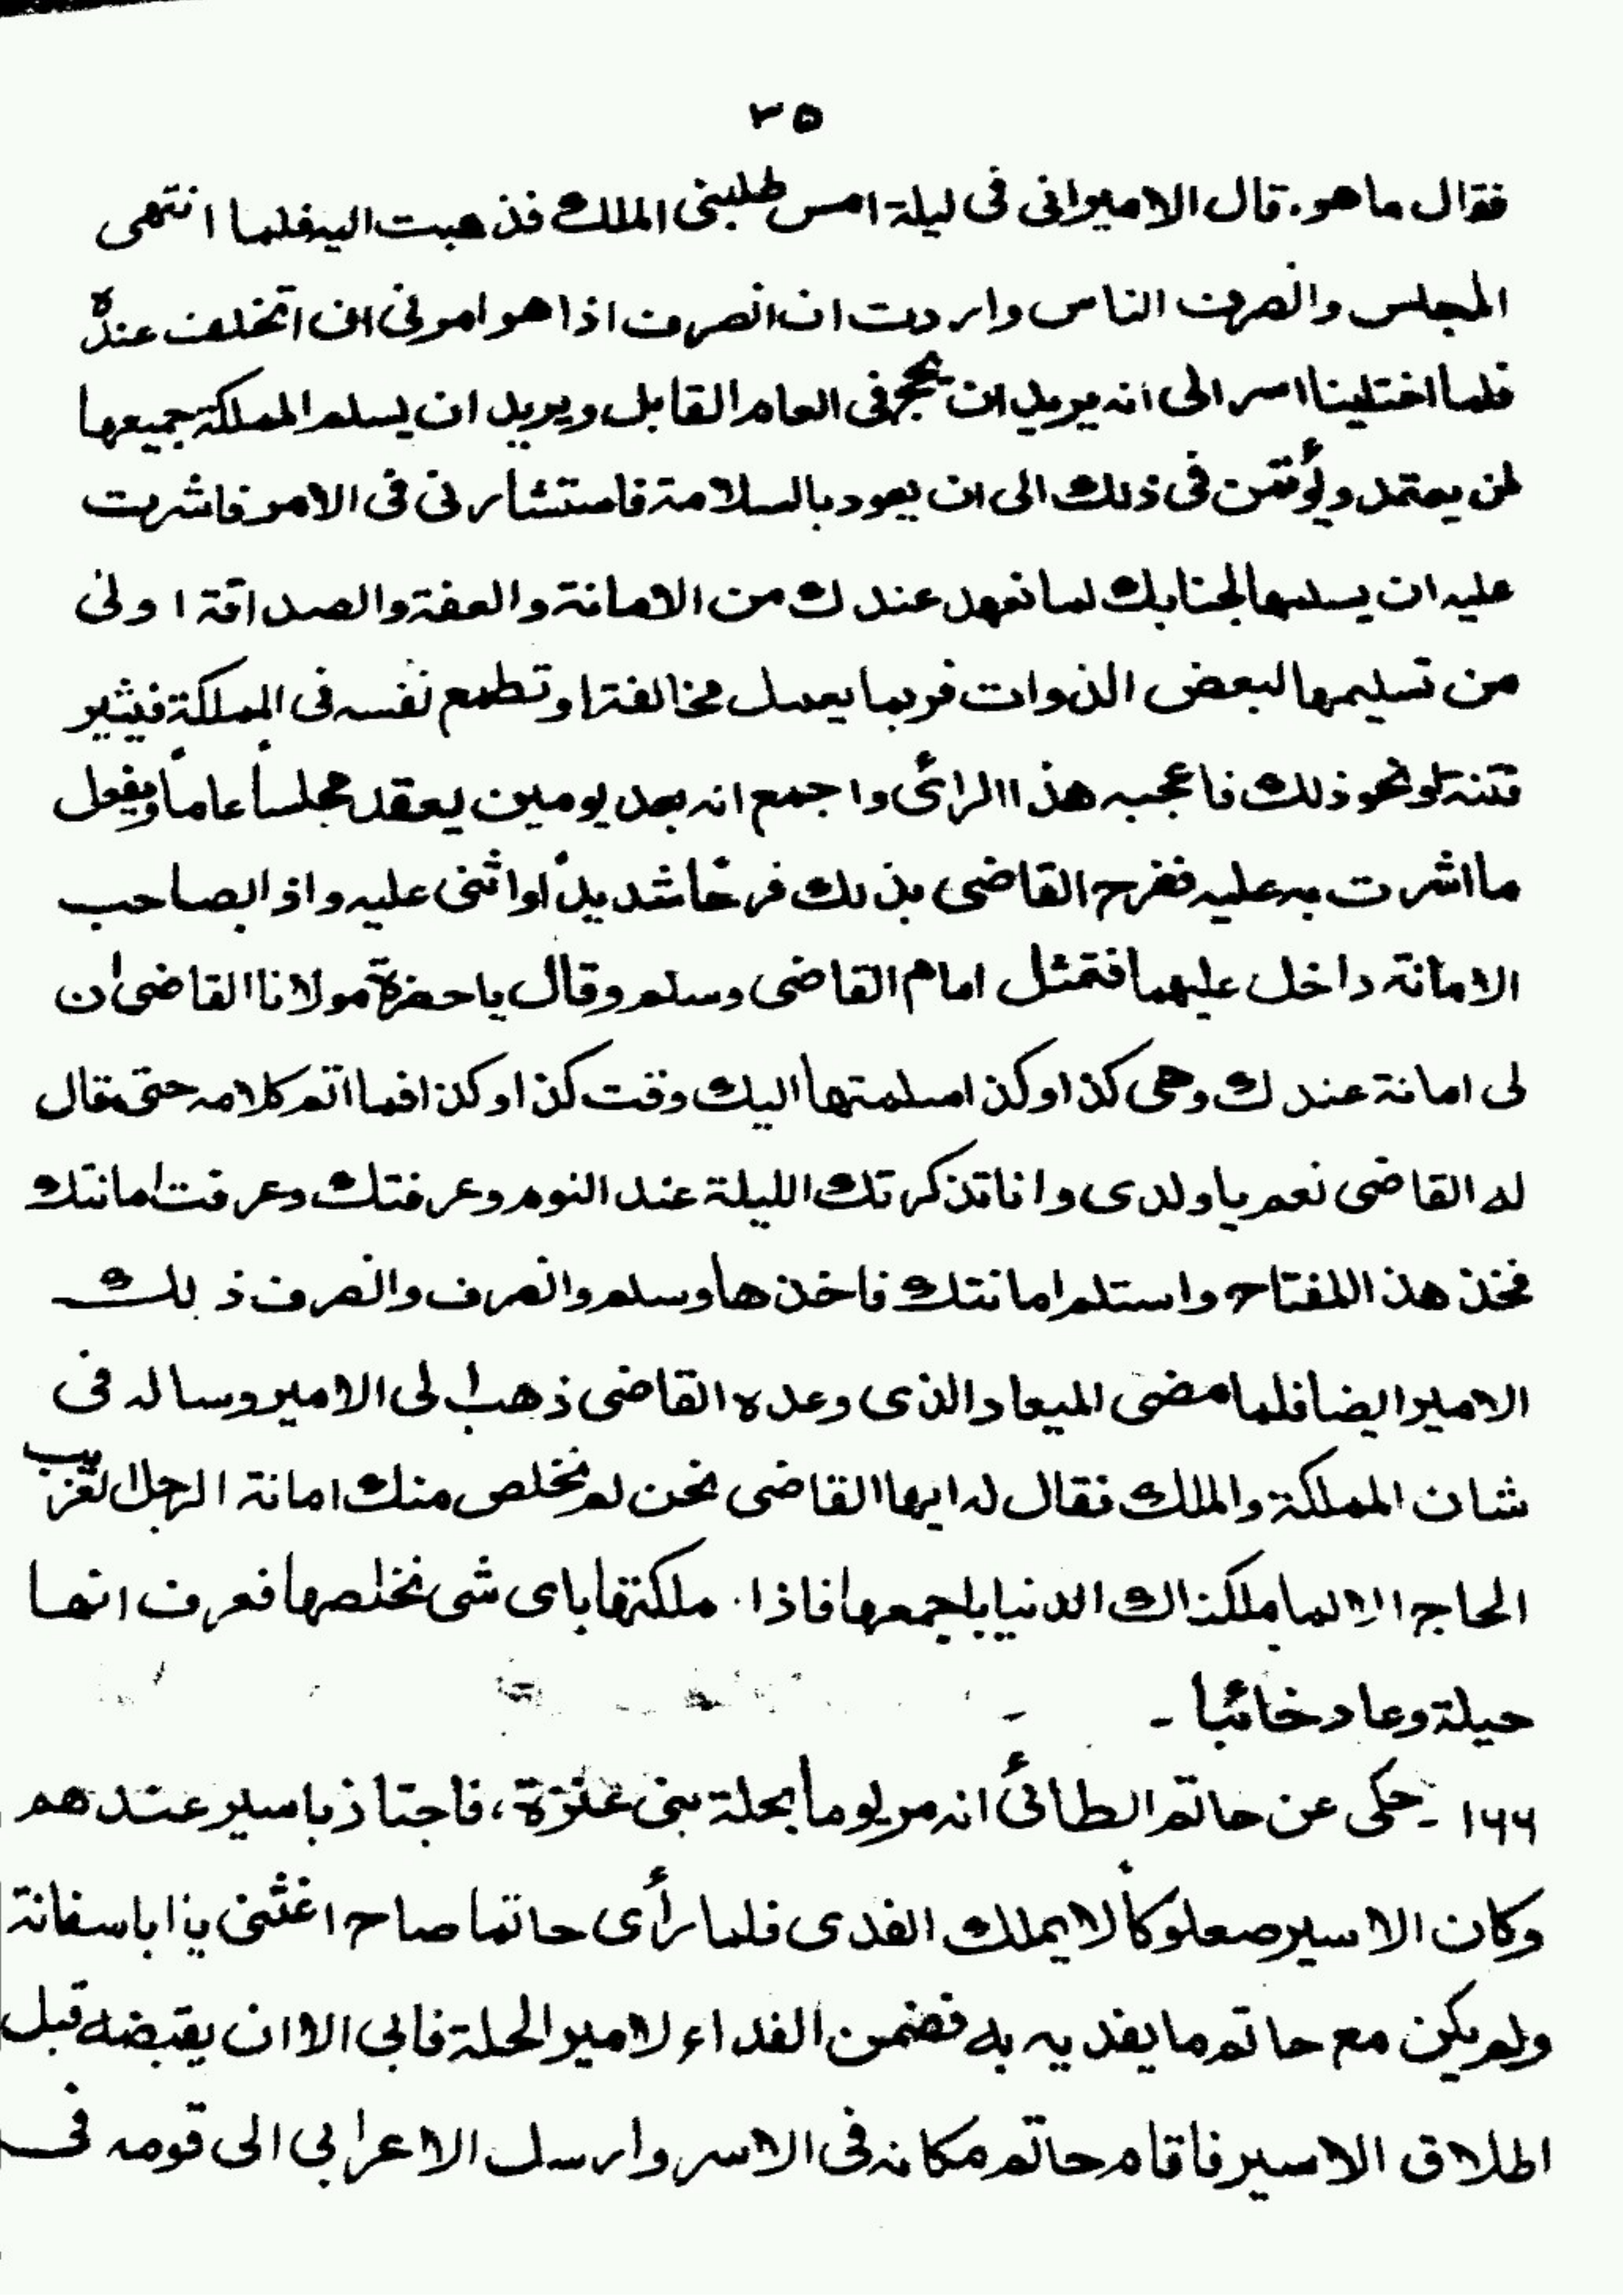 ٣٥
فقال ما هو. قال الامير انى فى ليلة امس طلبنى الملك فذهبت اليه فلما انتهى
المجلس وانصرف الناس واردت ان انصرف اذا هو امرنى ان اتخلف عنده
فلما اختلينا اسر الى انه يريد ان يحج فى العام القابل ويريد ان يسلم المملكة جميعها
لمن يعتمد ويؤتمن فى ذلك الى ان يعود بالسلامة فاستشارنى فى الامر فاشرت
عليه ان يسلمها لجنابك لما نعهد عندك من الامانة والعفة والصداقة اولى
من تسليمها لبعض الذوات فربما يعمل مخالفة او تطمع نفسه فى المملكة فيثير
فتنة او نحو ذلك فاعجبه هذا الرائ واجمع انه بعد يومين يعقد مجلساً عاماً ويفعل
ما اشرت به عليه ففرح القاضى بذلك فرحًا شديدًا واثنى عليه واذا بصاحب
الامانة داخل عليهما فتمثل امام القاضى وسلم وقال يا حضرة مولانا القاضى ان
لى امانة عندك وهى كذا وكذا سلمتها اليك وقت كذا وكذا فما اتم كلامه حتى قال
له القاضى نعم يا ولدى وانا تذكرتك الليلة عند النوم وعرفتك وعرفت امانتك
فخذ هذا المفتاح واستلم امانتك فاخذها وسلم وانصرف وانصرف ذلك
الامير ايضا فلما مضى الميعاد الذى وعده القاضى ذهب الى الامير وساله فى
شان المملكة والملك فقال له ايها القاضى نحن لم نخلص منك امانة الرجل الغريب
الحاج الا لما ملكناك الدنيا باجمعها فاذا ملكتها باى شى نخلصها فعرف انها
حيلة وعاد خائبا ـ
١٦٦ ـ حكى عن حاتم الطائئ انه مر يوما بحلة بنى عنزة، فاجتاز باسير عندهم
وكان الاسير صعلوكاً لا يملك الفدى فلما رأى حاتما صاح اغثنى يا ابا سفانة
ولم يكن مع حاتم ما يفديه به فضمن الفداء لامير الحلة فابى الا ان يقبضه قبل
اطلاق الاسير فاقام حاتم مكانه فى الاسر وارسل الاعرابى الى قومه فى